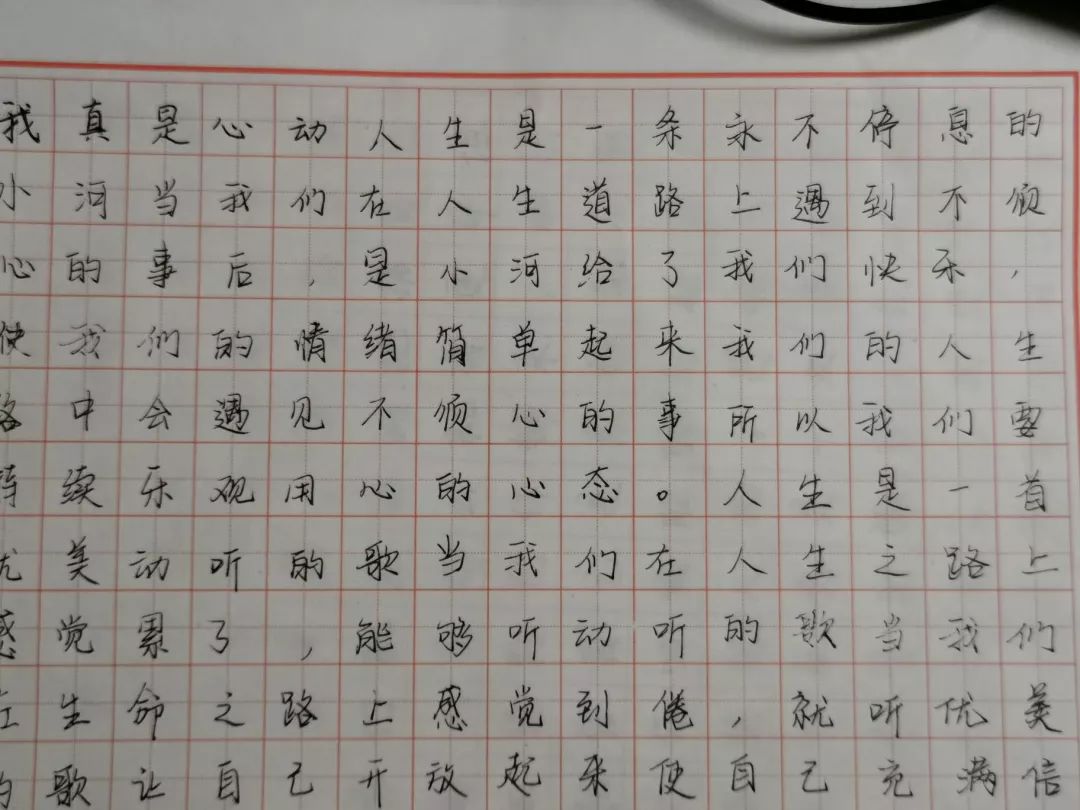 我真是心动人生是一条永不停息的
小河当我们在人生道路上遇到不顺
心的事后，是小河给了我们快乐，
使我们的情绪简单起来我们的人生
路中会遇见不顺心的事所以我们要
持续乐观用心的心态。人生是一首
优美动听的歌当我们在人生之路上
感觉累了，能够听动听的歌当我们
在生命之路上感觉到倦，就听优美
的歌让自己开放起来使自己充满信